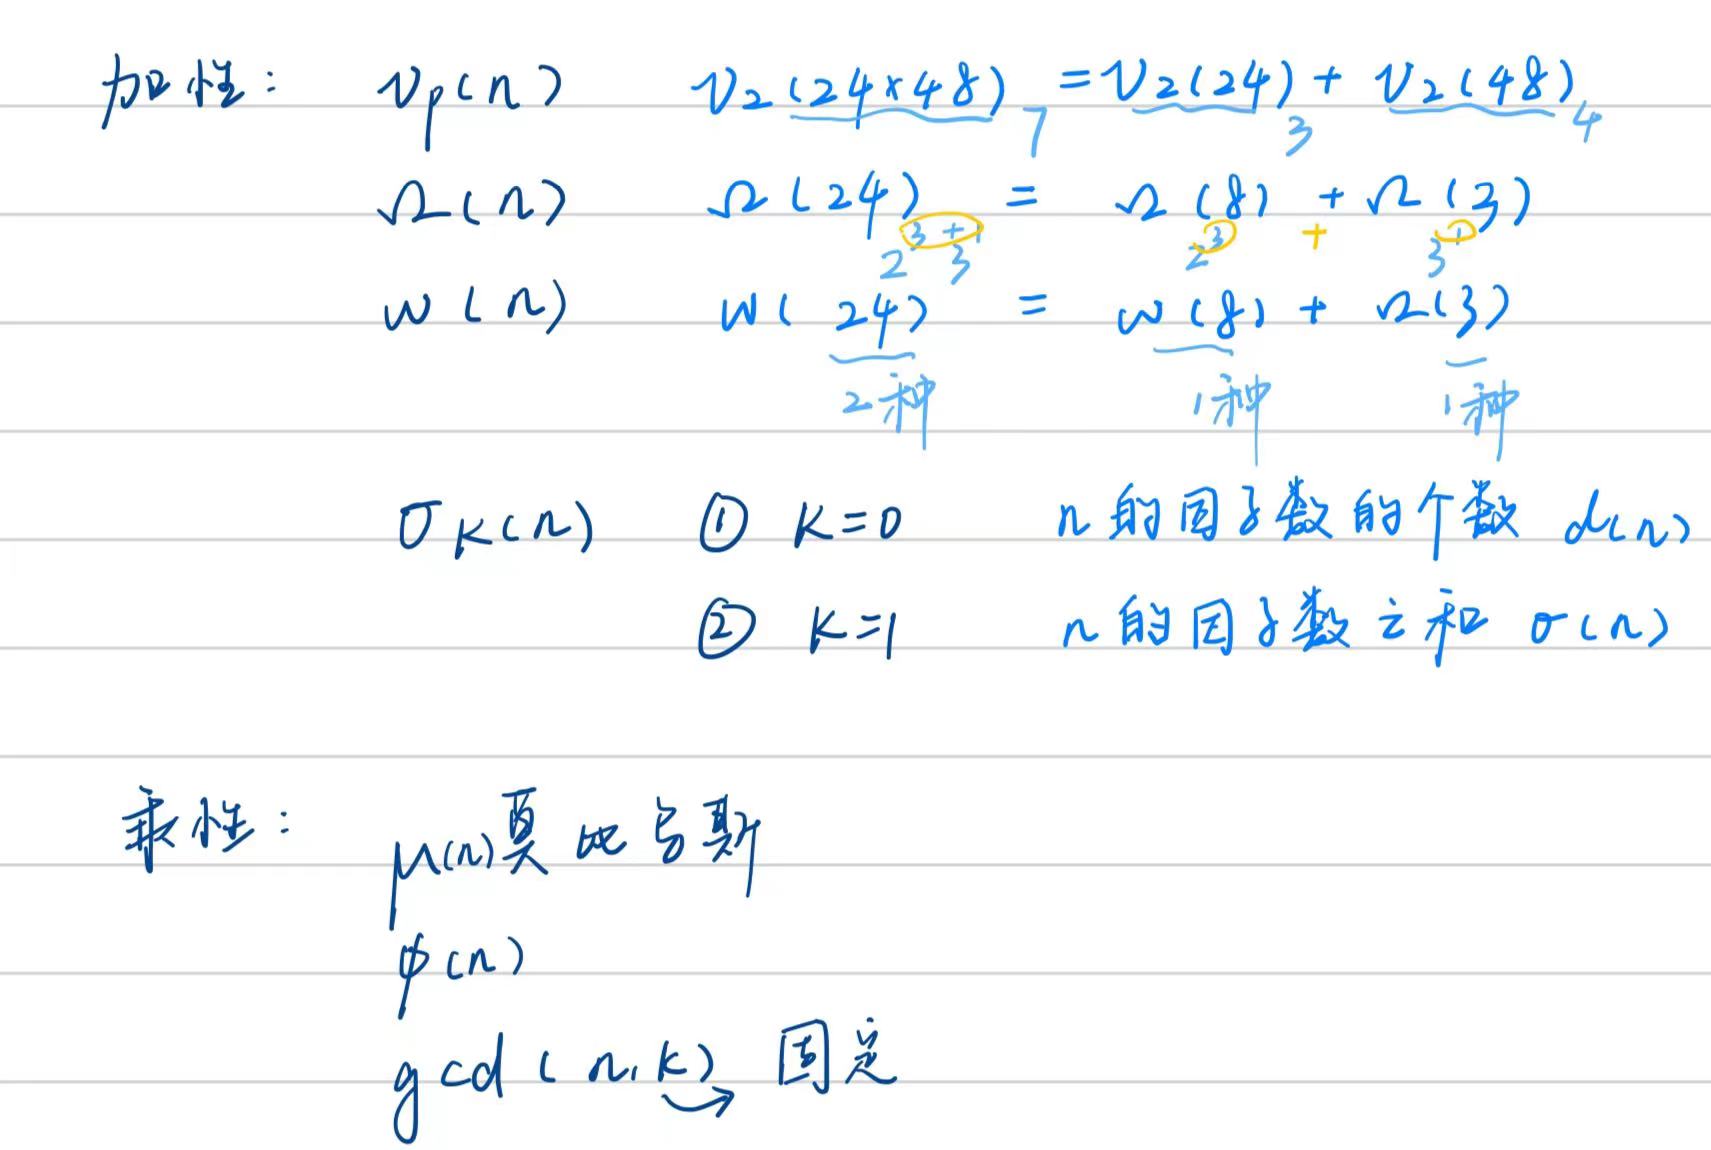 加性： νp(n) ν2(24×48) 7 = ν2(24) 3 + ν2(48) 4
Ω(n) Ω(24) = Ω(8) + Ω(3)
2^3+1 3 2^3 + 3^1
w(n) w(24) = w(8) + Ω(3)
2种 1种 1种
σK(n) ① K=0 n的因子数的个数 d(n)
② K=1 n的因子数之和 σ(n)
乘性： μ(n)莫比乌斯
φ(n)
gcd(n,k) → 固定